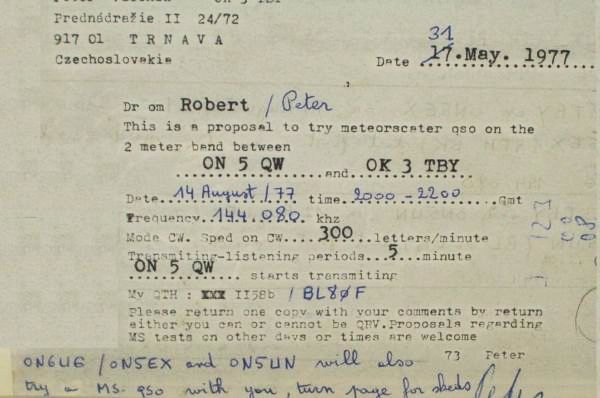 Prednádražie II 24/72
917 01 T R N A V A
Czechoslovakia
31
Date 17.May. 1977
Dr om Robert / Peter
This is a proposal to try meteorscater qso on the
2 meter band between
ON 5 QW and OK 3 TBY
Date..14 August/77 time.2000-2200.Gmt
Frequency.144.080. khz
Mode CW. Sped on CW....300....letters/minute
Transmiting-listening periods..5...minute
ON 5 QW starts transmiting
My QTH : XXX II58b / BL80F
Please return one copy with your comments by return
either you can or cannot be QRV.Proposals regarding
MS tests on other days or times are welcome
73 Peter
ON6UG /ON5EX and ON5UN will also
try a MS. qso with you, turn page for skeds